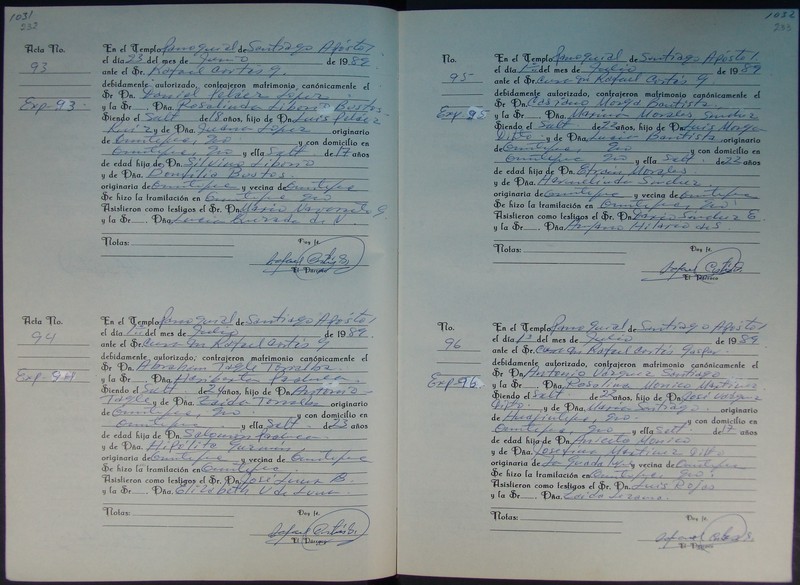 1031
232
Acta No.
93
Exp-93-
En el Templo Parroquial de Santiago Apóstol
el día 23 del mes de Junio de 1989
ante el Sr. Rafael Cortés G
debidamente autorizado, contrajeron matrimonio canónicamente el
Sr. Dn. Daniel Pelaez López
y la Sr. Rosalinda Liborio Bustos
Siendo el Solt de 18 años, hijo de Dn. Luis Pelaez
y de Dña. Juana López originario
de Ometepec, Gro y con domicilio en
Ometepec, Gro y ella Solt de 17 años
de edad hija de Dn. Silvino Liborio
y de Dña. Domitila Bustos.
originaria de Ometepec y vecina de Ometepec
Se hizo la tramilación en Ometepec Gro
Asistieron como testigos el Sr. Dn. Mario G.
y la Sr. Dña.
Notas:
Doy fe.
Rafael Cortés G.
El Párroco
Acta No.
94
Exp-94
En el Templo Parroquial de Santiago Apóstol
el día 1o del mes de Julio de 1989
ante el Sr. Cura Dn Rafael Cortés G
debidamente autorizado, contrajeron matrimonio canónicamente el
Sr. Dn. Abraham Tagle Torralba
y la Sr. Dña.
Siendo el Solt de años, hijo de Dn. Antonio
Tagle y de Dña. Zaida Torralba originario
de Ometepec, Gro y con domicilio en
Ometepec y ella Solt - 23 años
de edad hija de Dn. Salomón
y de Dña. Hipólita Guzmán
originaria de Ometepec y vecina de Ometepec
Se hizo la tramilación en Ometepec
Asistieron como testigos el Sr. Dn. José Luna B.
y la Sr. Dña. Elizabeth V de Luna
Notas:
Doy fe.
Rafael Cortés G.
El Párroco
1032
233
No.
95-
Exp 95
En el Templo Parroquial de Santiago Apóstol
el día 1o del mes de Julio de 1989
ante el Sr. Cura Dn Rafael Cortés G
debidamente autorizado, contrajeron matrimonio canónicamente el
Sr. Dn. Casiano Morga Bautista
y la Sr. Dña. Marina Morales Sánchez
Siendo el Solt de 22 años, hijo de Dn. Luis Morga
y de Dña. Lucia Bautista originario
de Ometepec, Gro y con domicilio en
Ometepec Gro y ella Solt. de 23 años
de edad hija de Dn. Efraín Morales
y de Dña. Hermelinda Sánchez
originaria de Ometepec y vecina de Ometepec
Se hizo la tramilación en Ometepec, Gro.
Asistieron como testigos el Sr. Dn. Sánchez
y la Sr. Dña. Hilario de S.
Notas:
Doy fe.
Rafael Cortés G.
El Párroco
No.
96
Exp-96
En el Templo Parroquial de Santiago Apóstol
el día 1o del mes de Julio de 1989
ante el Sr. Cura Dn Rafael Cortés Gaspar
debidamente autorizado, contrajeron matrimonio canónicamente el
Sr. Dn. Antonio Vázquez Santiago
y la Sr. Dña. Rosalina Monico Martínez
Siendo el Solt de años, hijo de Dn. José Vázquez
y de Dña. María Santiago originario
de Huajintepec, Gro y con domicilio en
Ometepec, Gro y ella Solt - 17 años
de edad hija de Dn. Aniceto Monico
y de Dña. Josefina Martínez
originaria de La Guadalupe y vecina de Ometepec
Se hizo la tramilación en Ometepec, Gro.
Asistieron como testigos el Sr. Dn. Luis Rojas
y la Sr. Dña. Zaida Lozano
Notas:
Doy fe.
Rafael Cortés G.
El Párroco